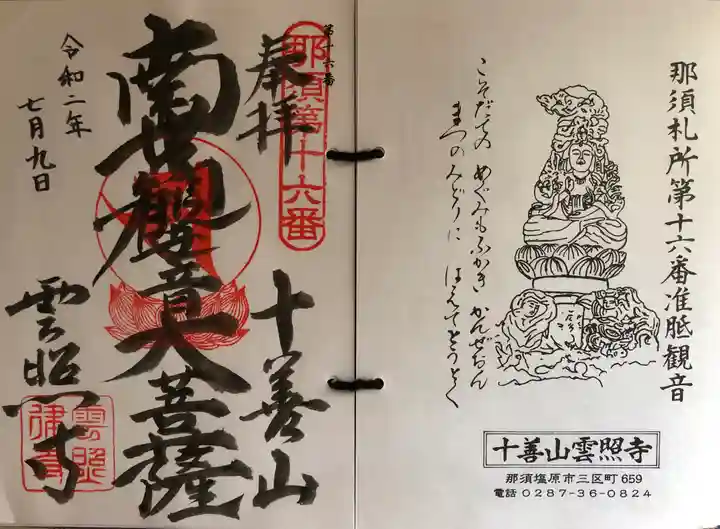 那須札所第十六番准胝観音
こそだての めぐみもふかき かんぜおん
まつのみどりに はえてとうとく
十善山雲照寺
那須塩原市三区町 659
電話 0287-36-0824
第十六番
那須第十六番
奉拝
十善山
南無観音大菩薩
雲照寺
令和二年
七月九日